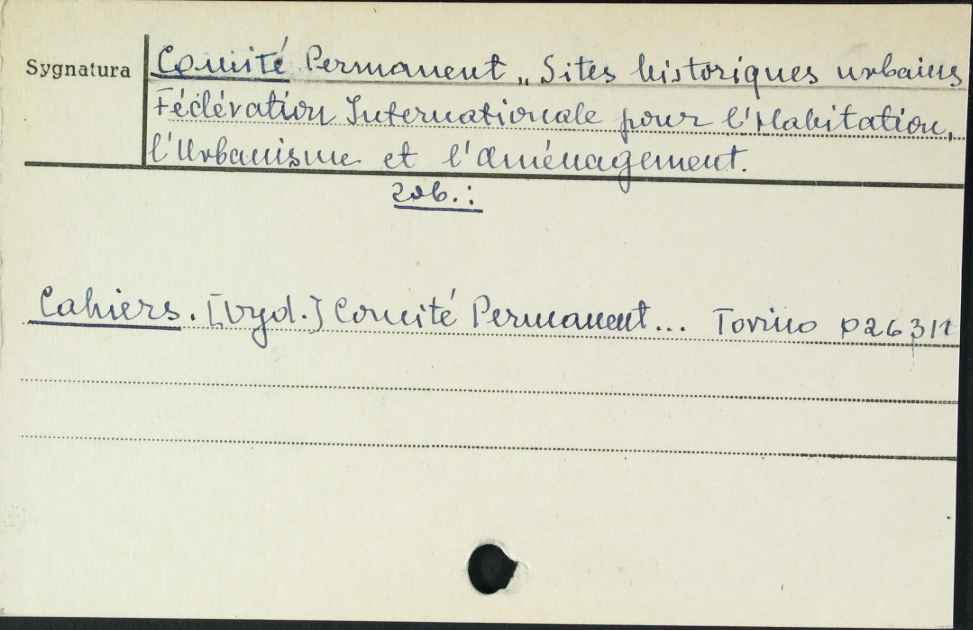 Sygnatura
Comité Permanent „Sites historiques urbains
Fédération Internationale pour l'Habitation,
l'Urbanisme et l'aménagement.
zob.:
Cahiers. [Wyd.] Comité Permanent... Torino p26311